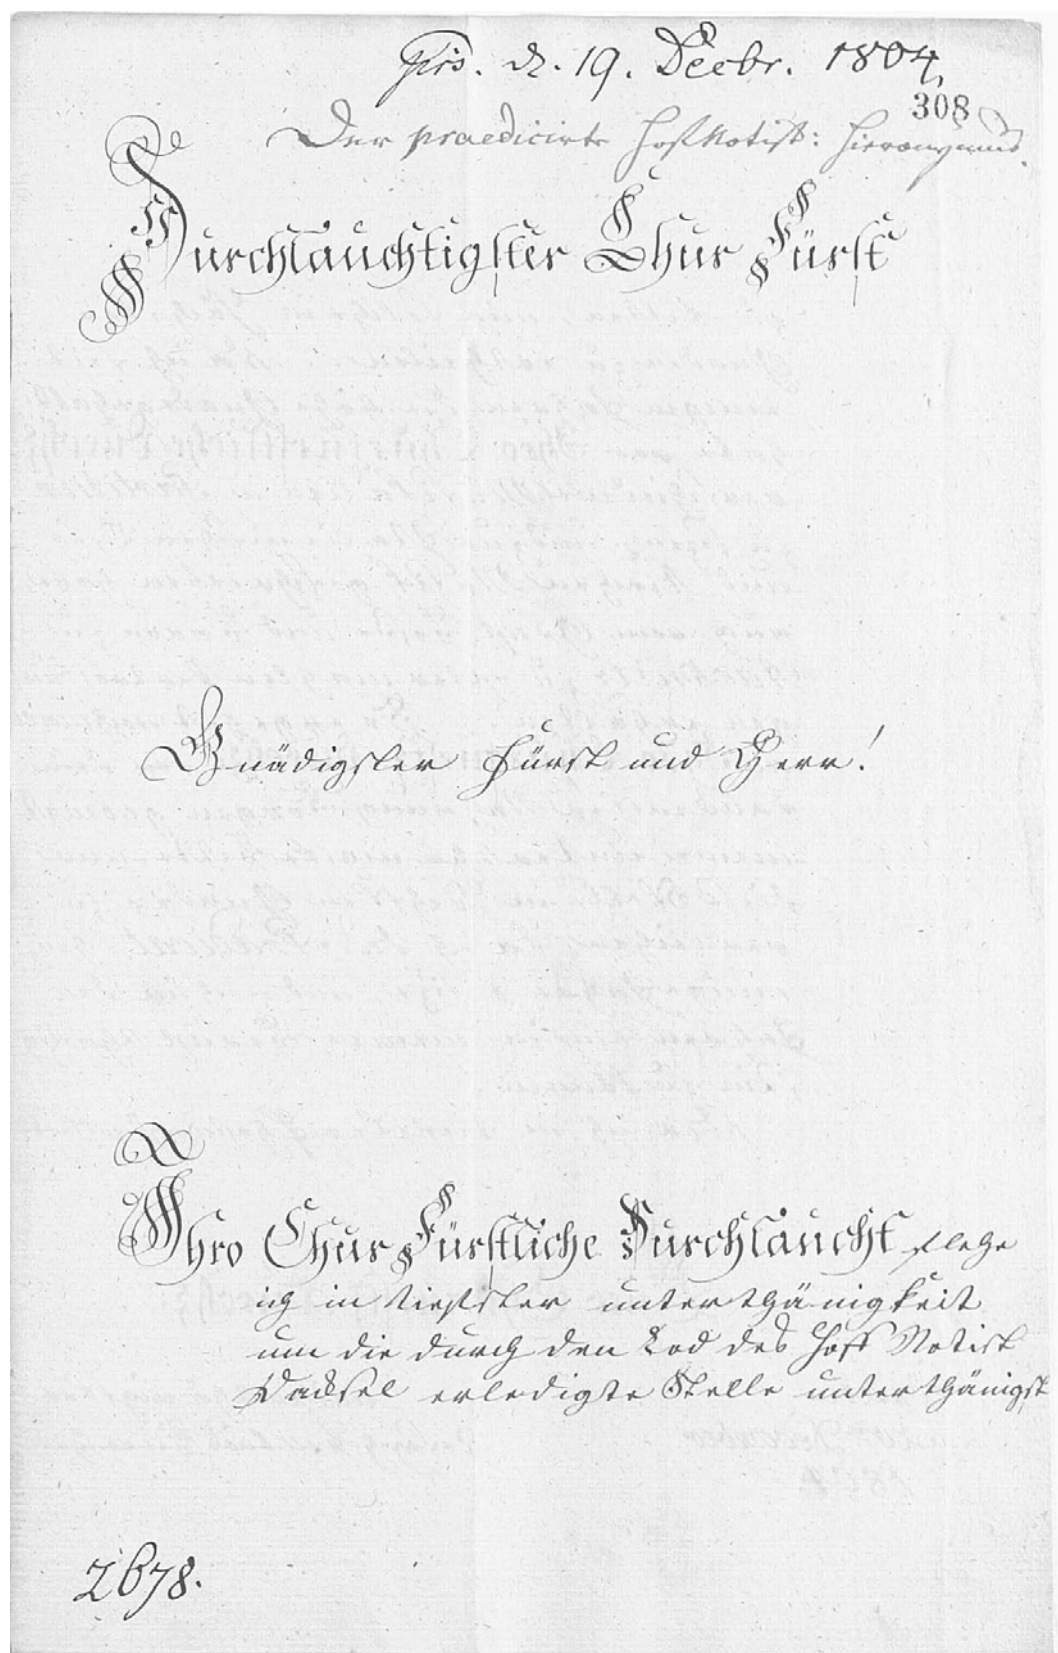 d. 19. Decbr. 1804,
308
Der praedicirte Hof Notist: Hieronymus.
Durchlauchtigster Chur Fürst
Gnädigster Fürst und Herr!
Ihro Chur Fürstliche Durchlaucht flehe
ich in tiefster unterthänigkeit
um die durch den Tod des Hoff Notist
erledigte Stelle unterthänigst
2678.